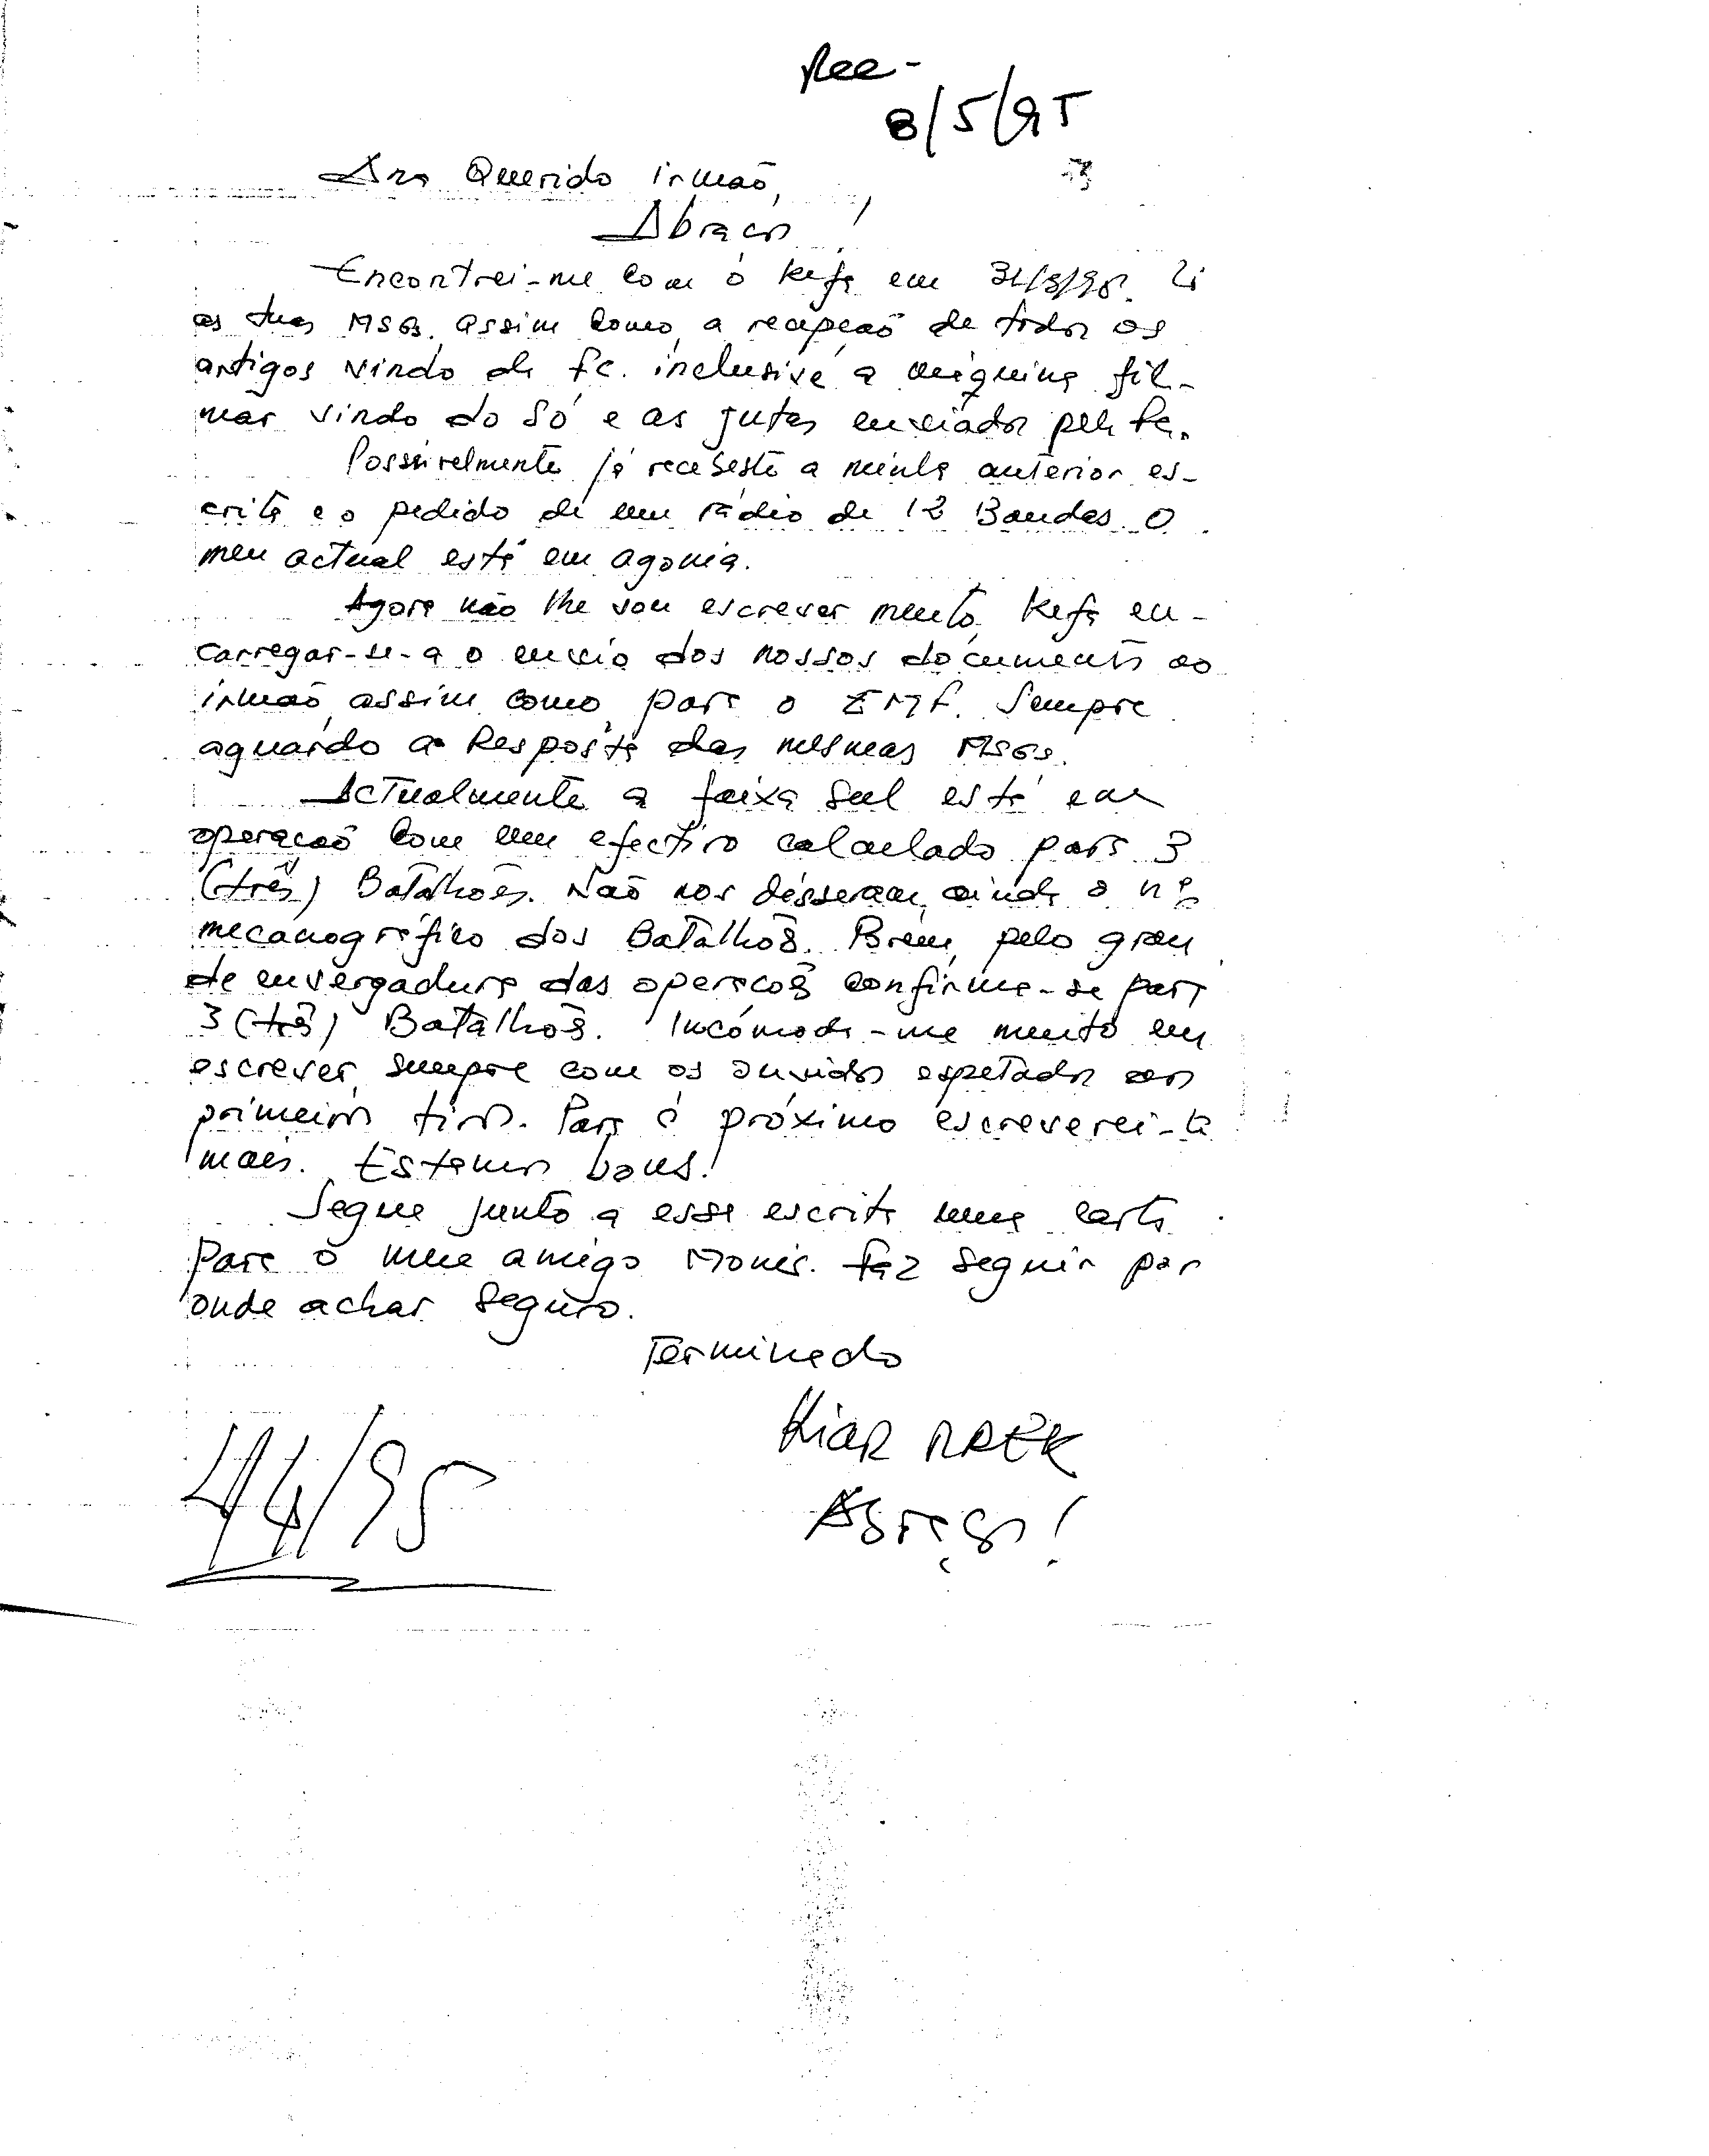 Rec -
8/5/95
Querido irmão,
Abraços!
Encontrei-me com o Kefa em 31/3/95. Li
as tuas MSGs. assim como, a recepção de todos os
artigos vindo de fc. inclusivé a máquina fil-
mar vindo do Só e as jutas enviados pela
Possivelmente já recebeste a minha anterior es-
crita e o pedido de um rádio de 12 Bandas. O
meu actual está em agonia.
Agora não lhe vou escrever muito, Kefa en-
carregar-se-a o envio dos nossos documentos ao
irmão, assim como, para o EMF. Sempre
aguardo a Resposta das mesmas MSGs.
Actualmente a faixa sul está em
operação com um efectivo calculado para 3
(três) Batalhões. Não nos disseram, ainda o nº
mecanográfico dos Batalhões. Porém, pelo grau
de envergadura das operações confirma-se para
3 (três) Batalhões. Incómoda-me muito em
escrever, sempre com os ouvidos espetados aos
primeiros tiros. Para o próximo escreverei-te
mais. Estamos bons!
Segue junto a esse escrita uma carta
para o meu amigo Monis. Faz seguir por
onde achar seguro.
Terminado
Kiar
Abraços!
4/4/95